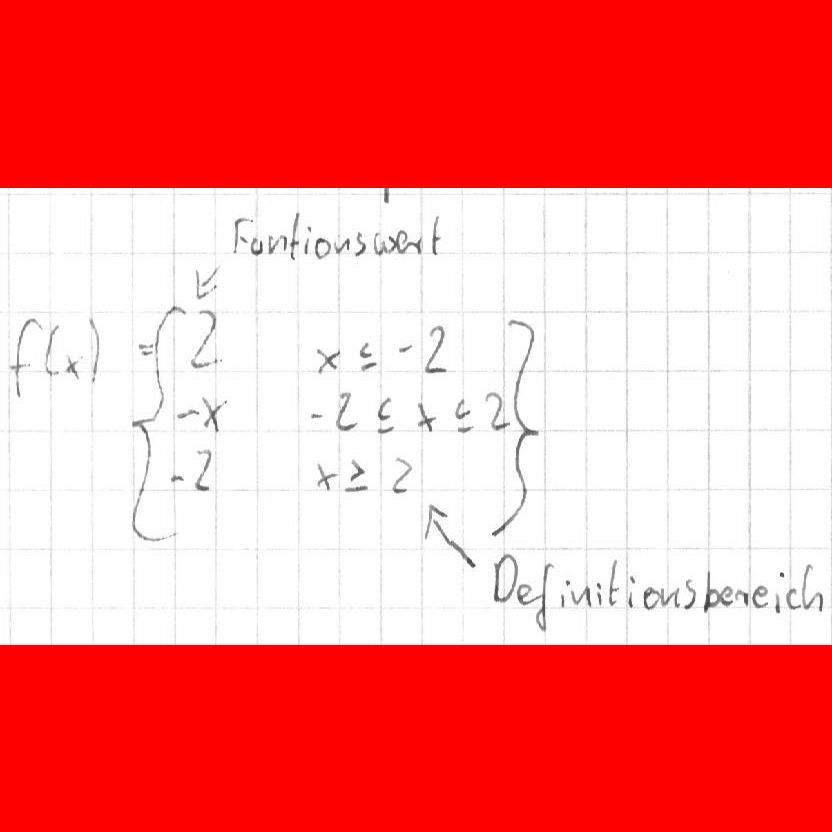 Funtionswert
f(x) = { 2 x ≤ -2 }
-x -2 ≤ x ≤ 2
-2 x ≥ 2
Definitionsbereich